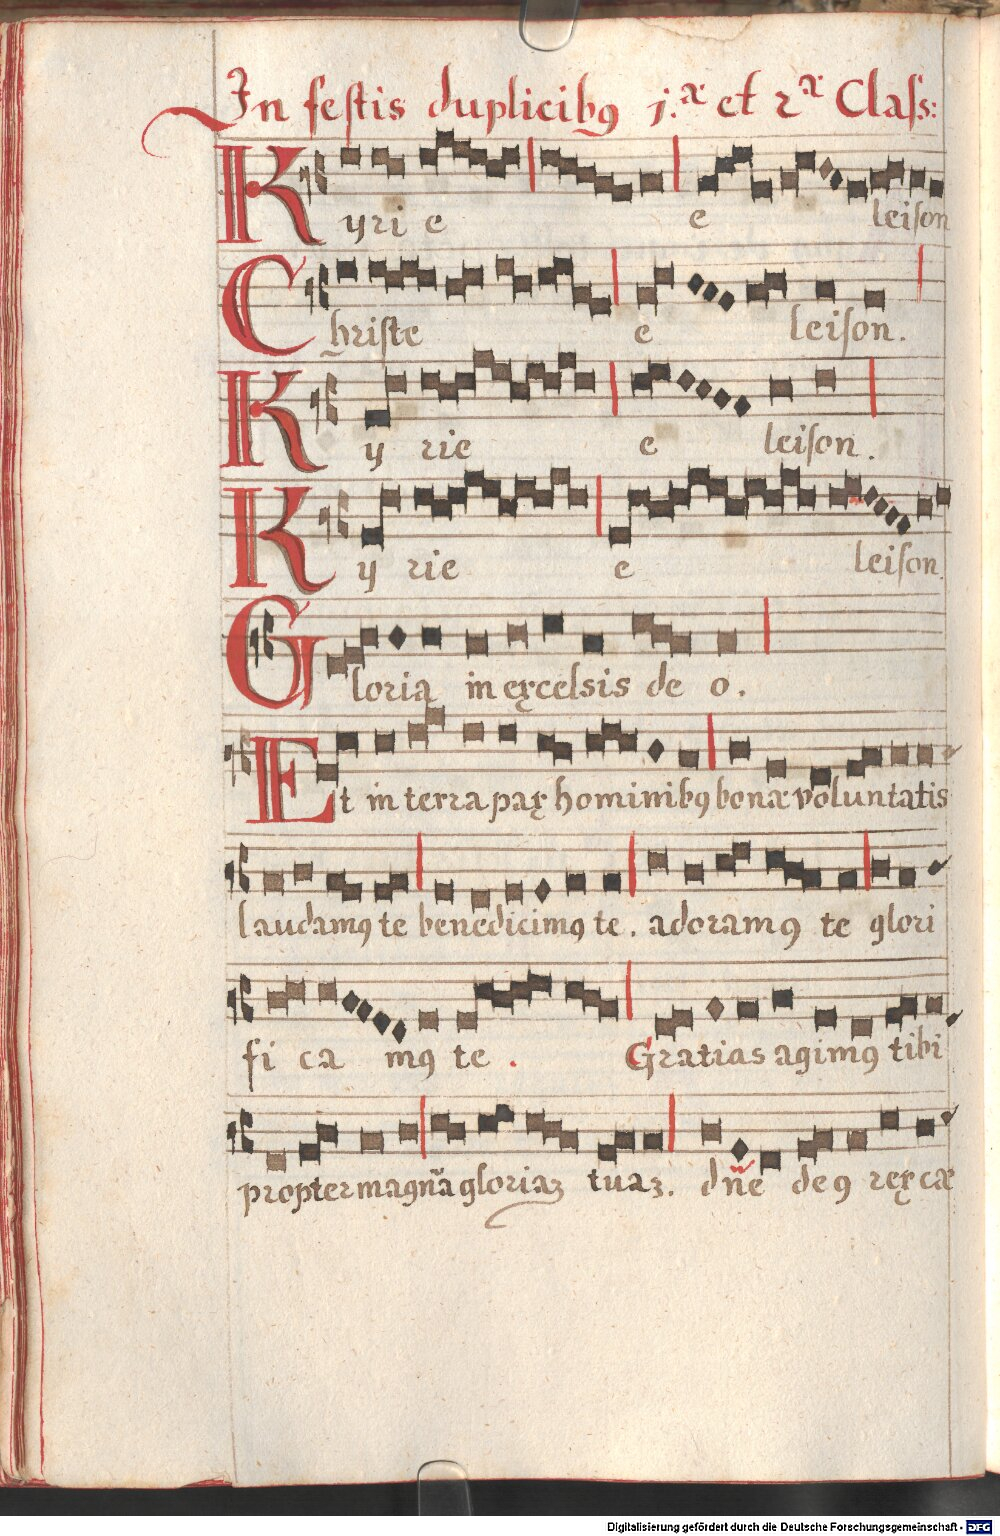 In festis duplicibꝰ 1.æ et 2æ Class:
Kyrie e leison
Christe e leison.
Ky rie e leison.
Ky rie e leison.
Gloria in excelsis de o.
Et in terra pax hominibꝰ bonæ voluntatis
laudamꝰ te benedicimꝰ te. adoramꝰ te glori
fi ca mꝰ te . Gratias agimꝰ tibi
propter magnā gloriaꝫ tuaꝫ. dñe deꝰ rex cæ
Digitalisierung gefördert durch die Deutsche Forschungsgemeinschaft - DFG